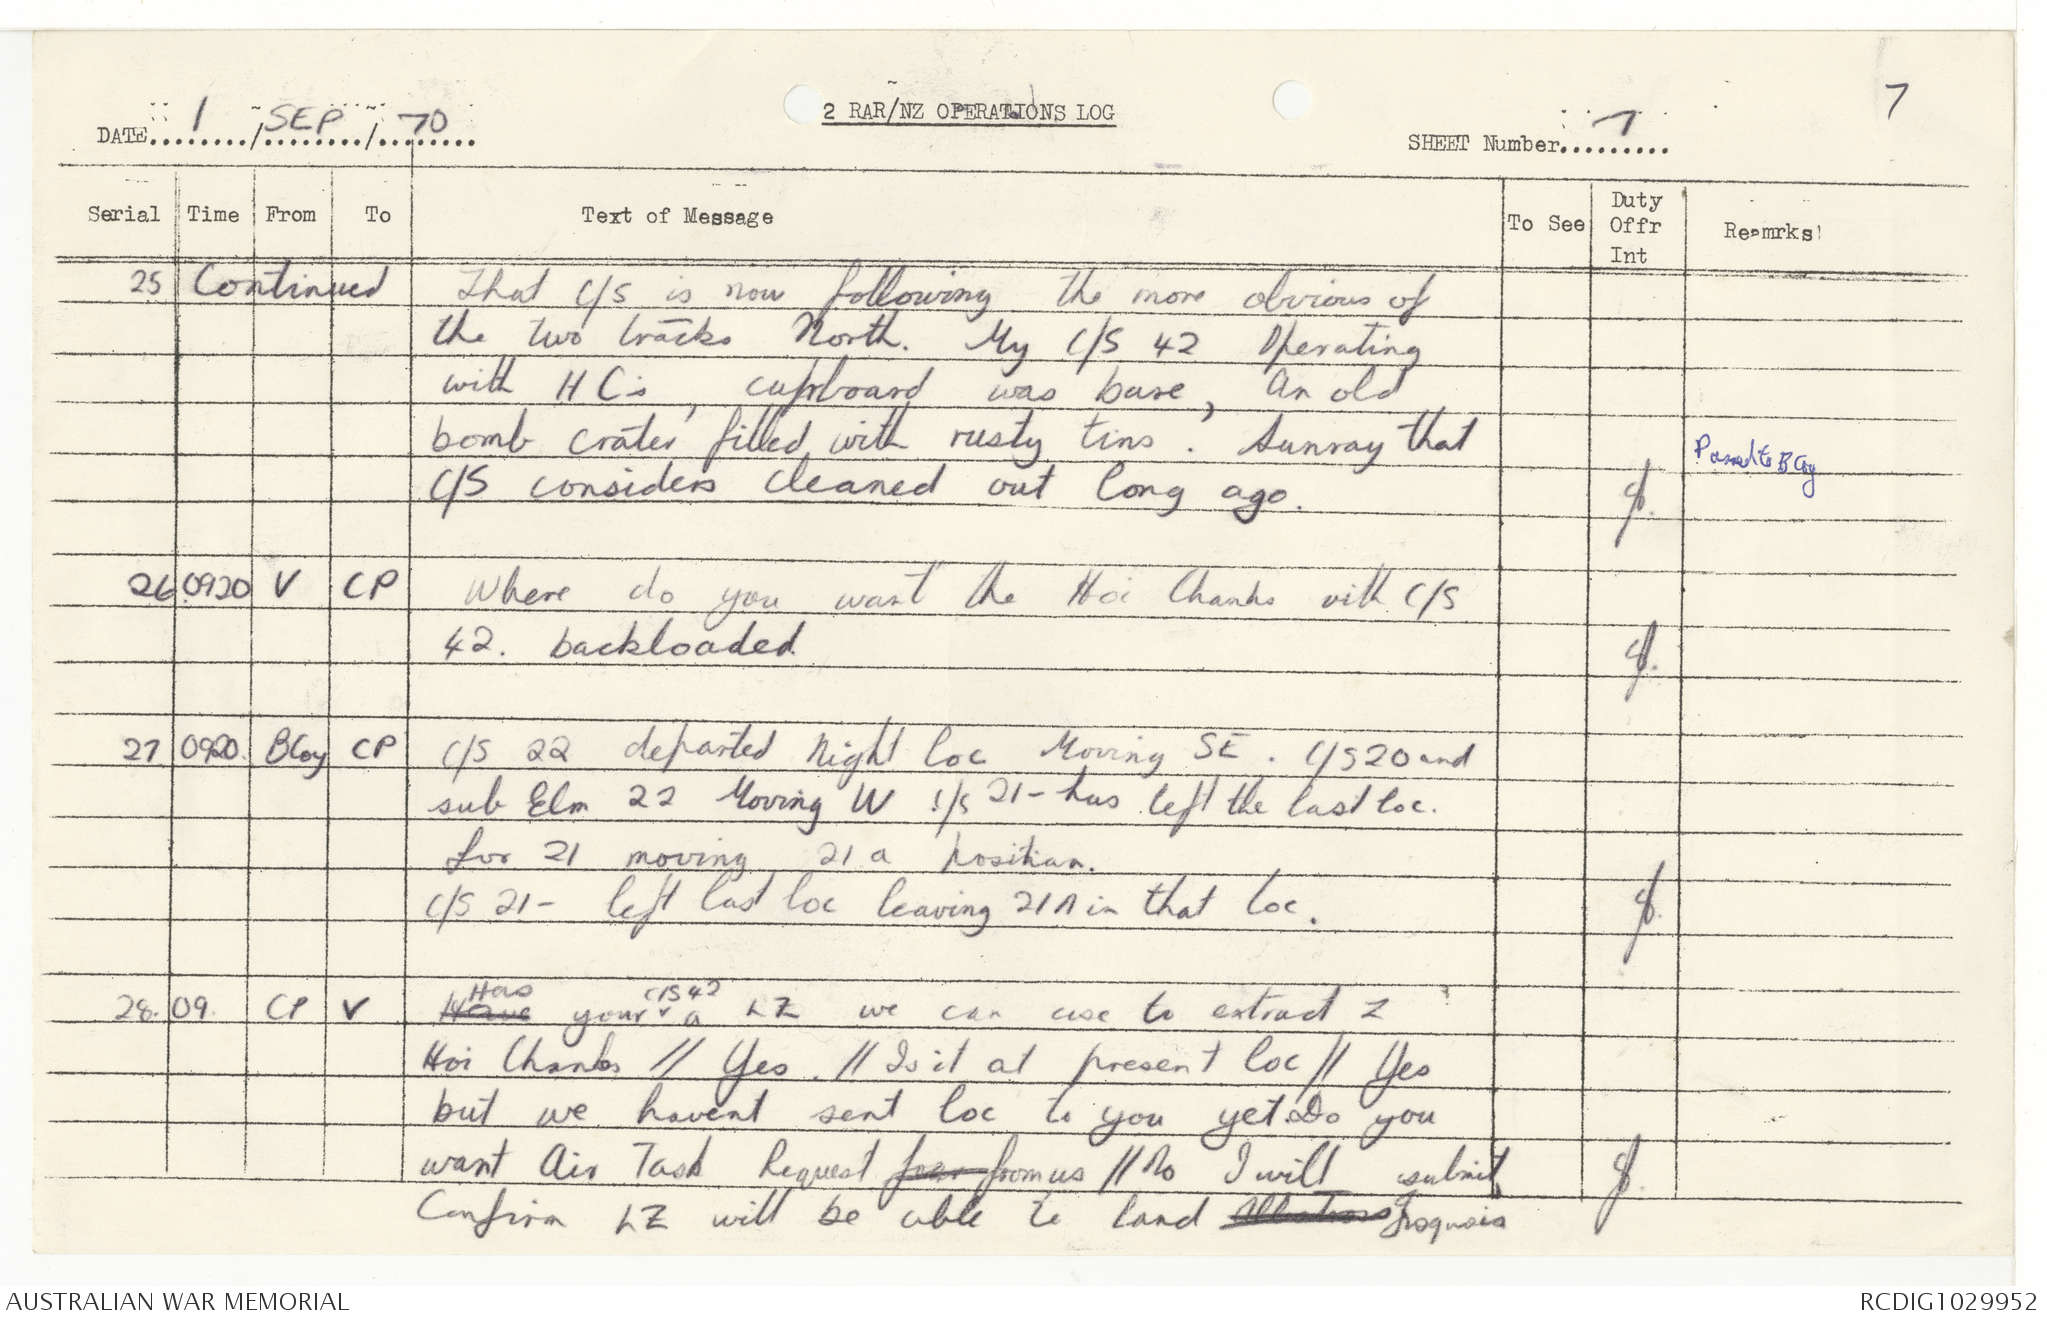 7
DATE 1 / SEP / 70
2 RAR/NZ OPERATIONS LOG
SHEET Number 7
Serial Time From To Text of Message To See Duty Offr Int Reamrks
25 Continued That C/S is now following the more obvious of
the two tracks North. My C/S 42 Operating
with HC's, cupboard was bare, An old
bomb crater filled with rusty tins. Sunray that
C/S considers cleaned out long ago.
Passed to B Coy
26 0920 V CP Where do you want the Hoi Chanhs with C/S
42. backloaded.
27 0920. BCoy CP C/S 22 departed Night loc Moving SE. C/S 20 and
sub Elm 22 Moving W C/S 21- has left the last loc.
for 21 moving 21a position.
C/S 21- left last loc leaving 21A in that loc.
28. 09. CP V Have Has your C/S 42 a LZ we can use to extract 2
Hoi Chanhs // Yes. // Is it at present loc // Yes
but we havent sent loc to you yet. Do you
want Air Task Request from us // No I will submit
Confirm LZ will be able to land Albatross Iroquois
AUSTRALIAN WAR MEMORIAL
RCDIG1029952